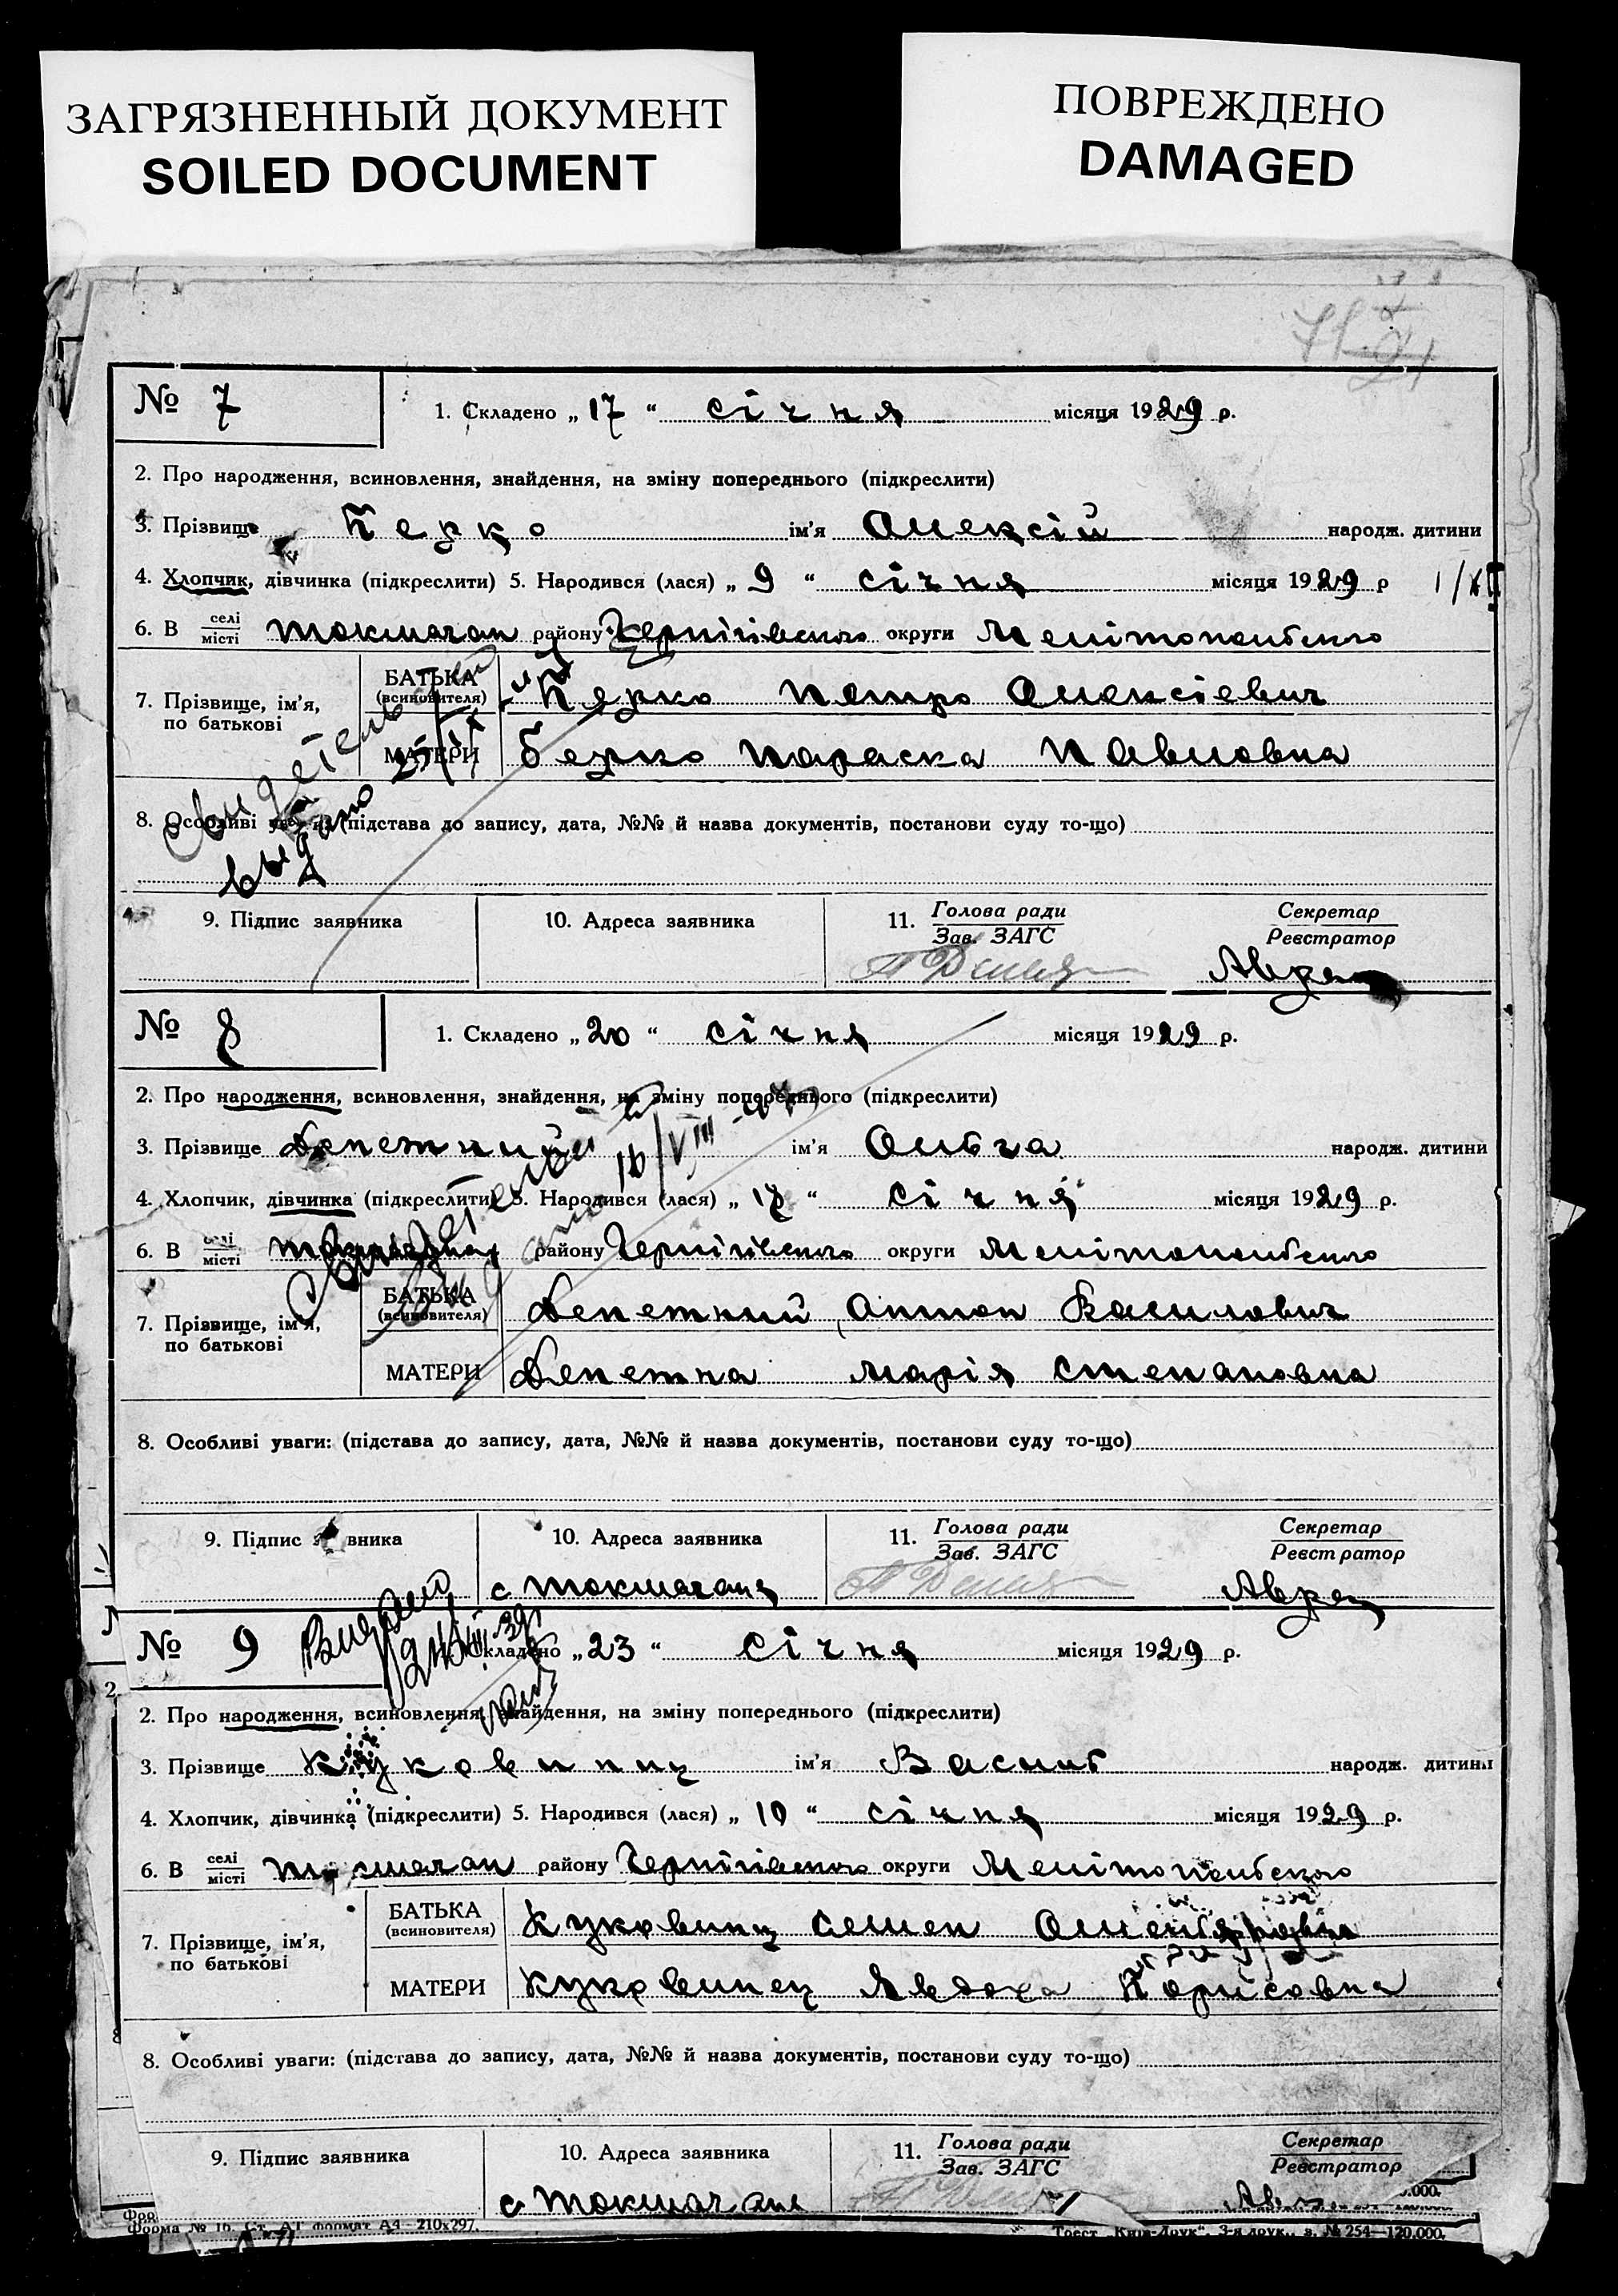 ЗАГРЯЗНЕННЫЙ ДОКУМЕНТ
SOILED DOCUMENT
ПОВРЕЖДЕНО
DAMAGED
№ 7
1. Складено „17“ січня місяця 1929 р.
2. Про народження, всиновлення, знайдення, на зміну попереднього (підкреслити)
3. Прізвище ім'я Олексій народж. дитини
4. Хлопчик, дівчинка (підкреслити) 5. Народився (лася) „9“ січня місяця 1929 р
6. В селі місті Токмачан району Чернігівського округи Мелітопольського
7. Прізвище, ім'я, по батькові
БАТЬКА (всиновителя) Петро Олексієвич
МАТЕРИ Параска Павловна
8. Особливі уваги: (підстава до запису, дата, №№ й назва документів, постанови суду то-що)
выдано
9. Підпис заявника 10. Адреса заявника 11. Голова ради Зав. ЗАГС Секретар Реєстратор
№ 8
1. Складено „20“ січня місяця 1929 р.
2. Про народження, всиновлення, знайдення, на зміну попереднього (підкреслити)
3. Прізвище ім'я Ольга народж. дитини
4. Хлопчик, дівчинка (підкреслити) 5. Народився (лася) січня місяця 1929 р.
6. В селі місті району Чернігівського округи Мелітопольського
7. Прізвище, ім'я, по батькові
БАТЬКА (всиновителя) Антон Василович
МАТЕРИ Марія Степановна
8. Особливі уваги: (підстава до запису, дата, №№ й назва документів, постанови суду то-що)
9. Підпис заявника 10. Адреса заявника 11. Голова ради Зав. ЗАГС Секретар Реєстратор
с
№ 9
1. Складено „23“ січня місяця 1929 р.
2. Про народження, всиновлення, знайдення, на зміну попереднього (підкреслити)
3. Прізвище ім'я Василь народж. дитини
4. Хлопчик, дівчинка (підкреслити) 5. Народився (лася) „10“ січня місяця 1929 р.
6. В селі місті району Чернігівського округи Мелітопольського
7. Прізвище, ім'я, по батькові
БАТЬКА (всиновителя) Семен
МАТЕРИ Куковинец Явдоха Борисовна
8. Особливі уваги: (підстава до запису, дата, №№ й назва документів, постанови суду то-що)
9. Підпис заявника 10. Адреса заявника 11. Голова ради Зав. ЗАГС Секретар Реєстратор
с
Форма № 16. Ст. А1 формат А4 - 210x297.
Трест „Київ-Друк“, 3-я друк., з. № 254—120.000.